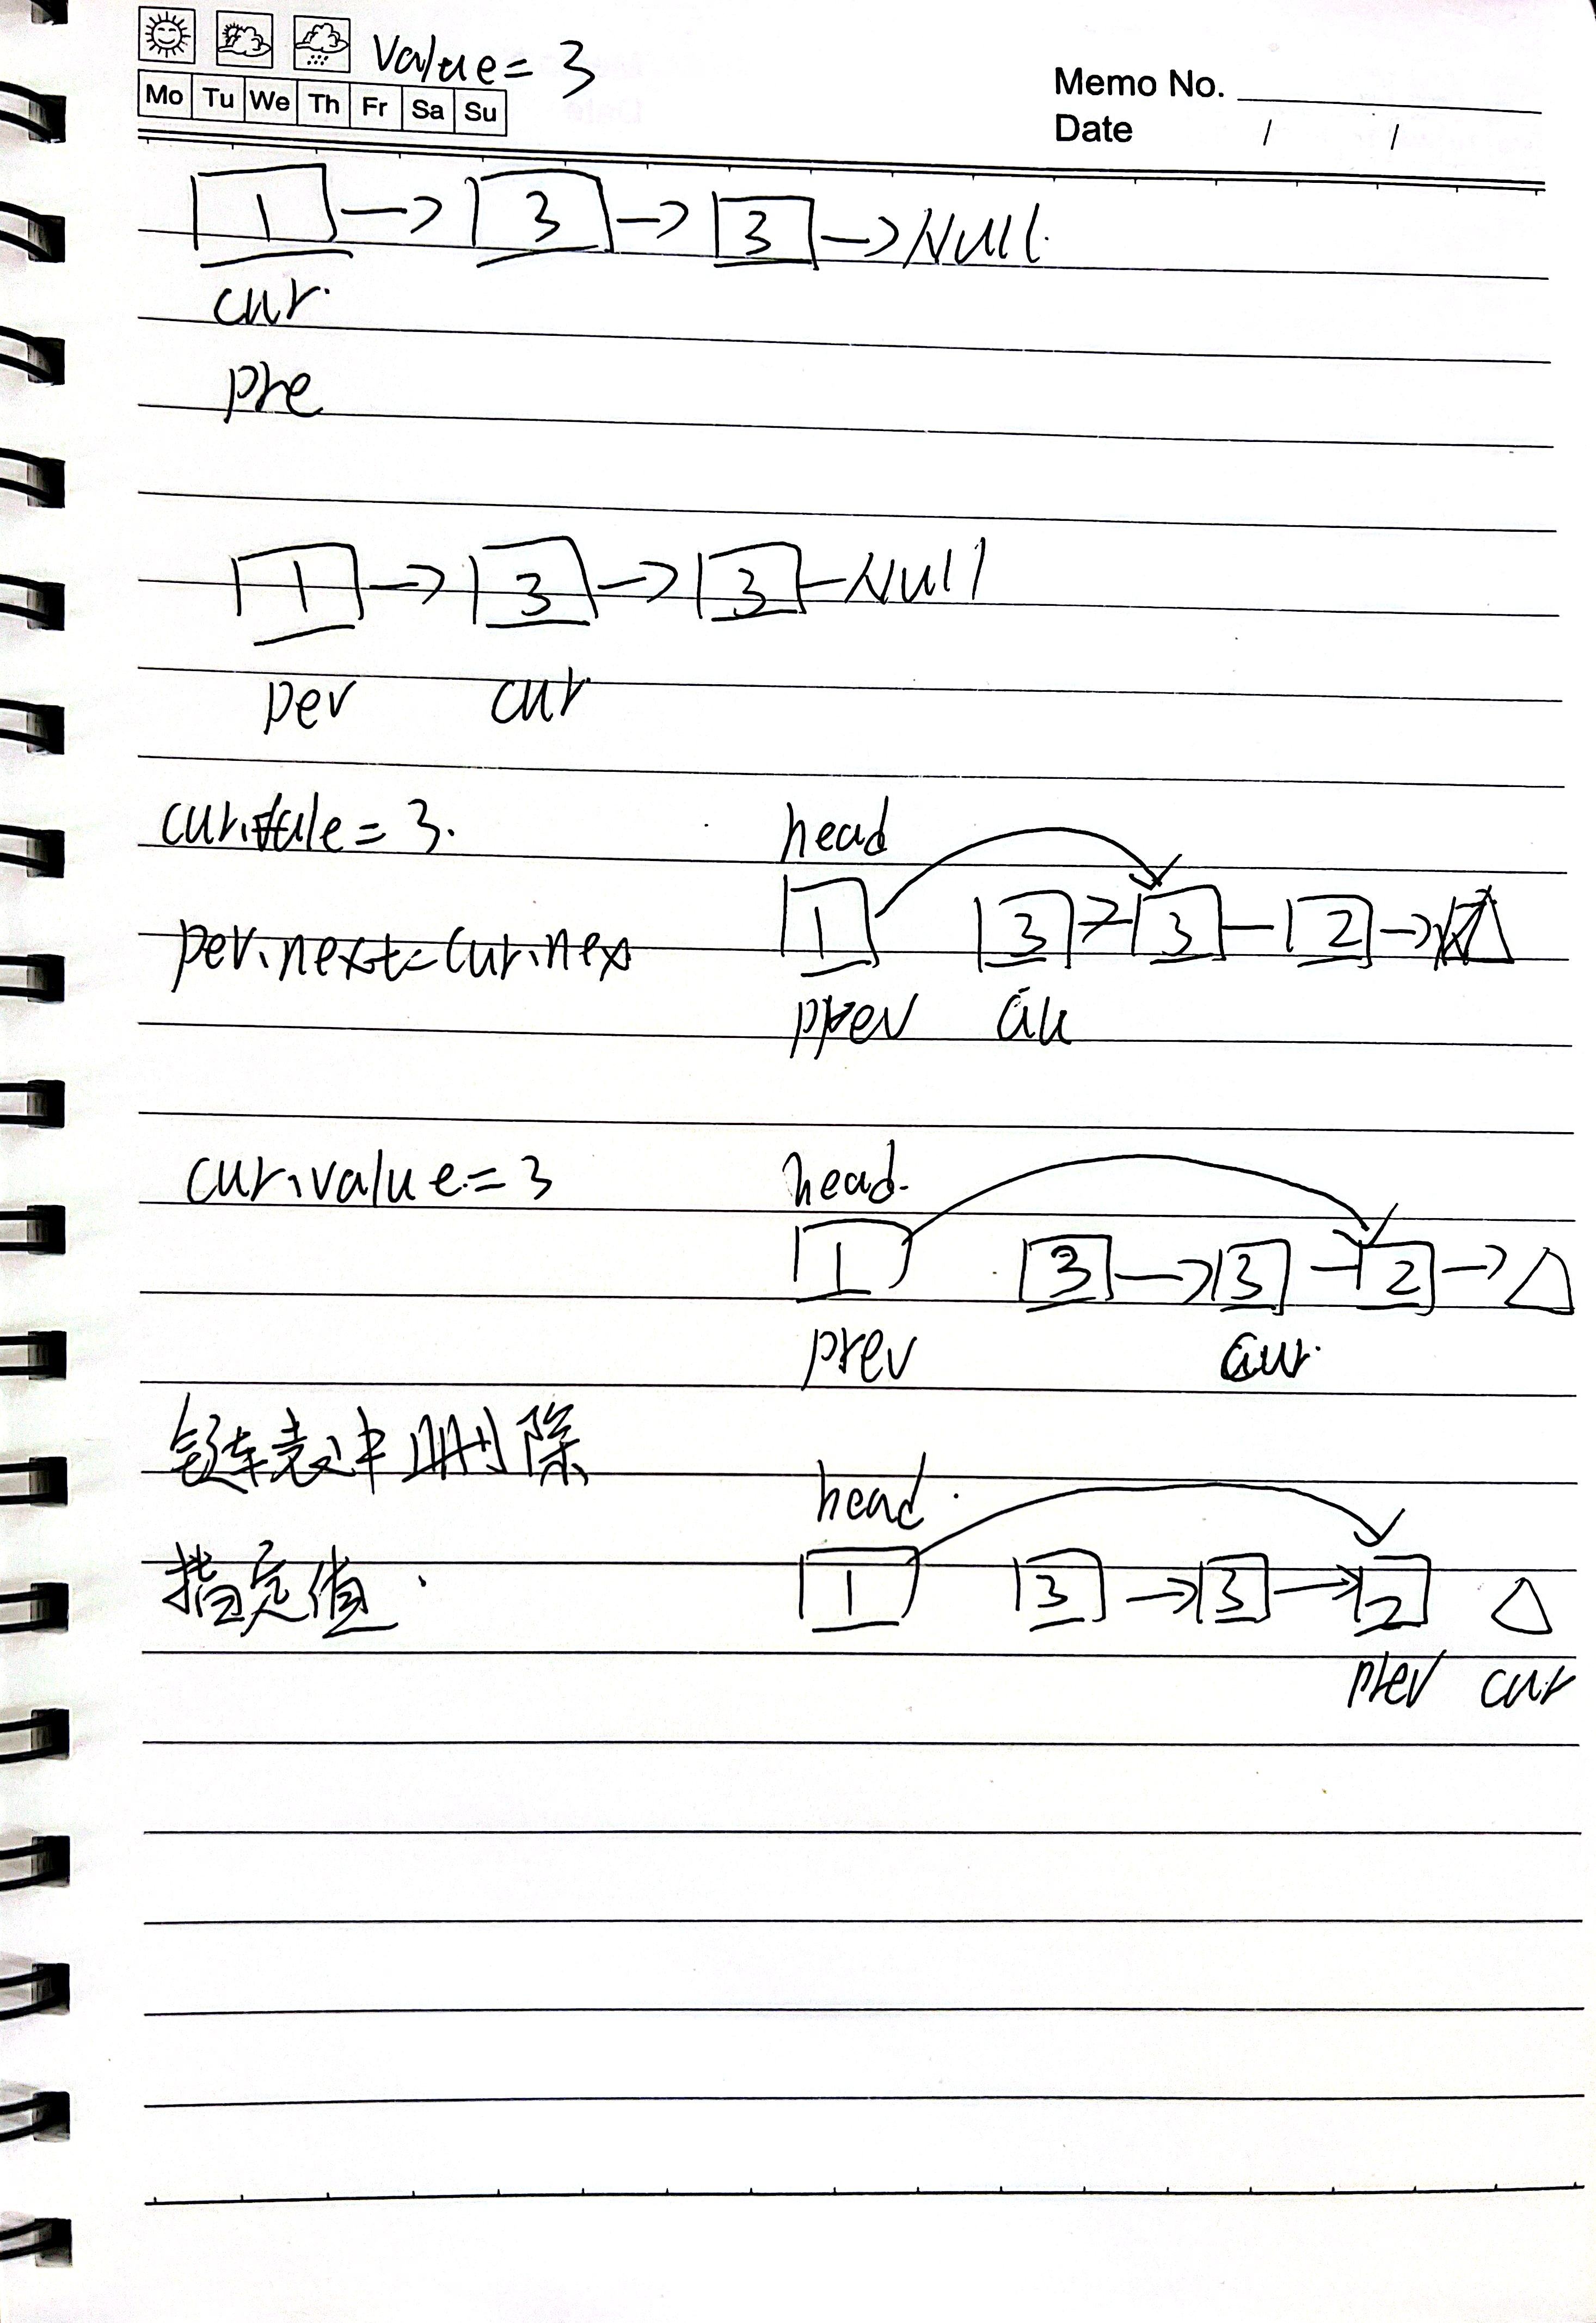 value = 3
Mo Tu We Th Fr Sa Su
Memo No.
Date / /
1 → 3 → 3 → Null
cur
pre
1 → 3 → 3 — Null
pev cur
= 3.
head
1 3 → 3 — 2 →
pev.next = cur.nex
prev
cur.value = 3
head
1 3 → 3 — 2 →
prev cur
链表中删除
head
指定值
1 3 → 3 → 2
prev cur